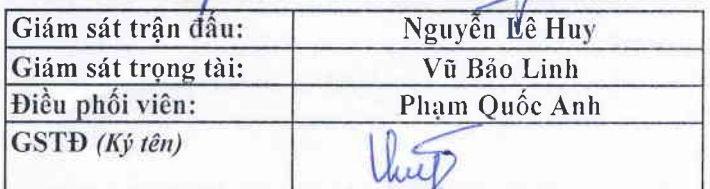 Giám sát trận đấu: Nguyễn Lê Huy
Giám sát trọng tài: Vũ Bảo Linh
Điều phối viên: Phạm Quốc Anh
GSTĐ (Ký tên)